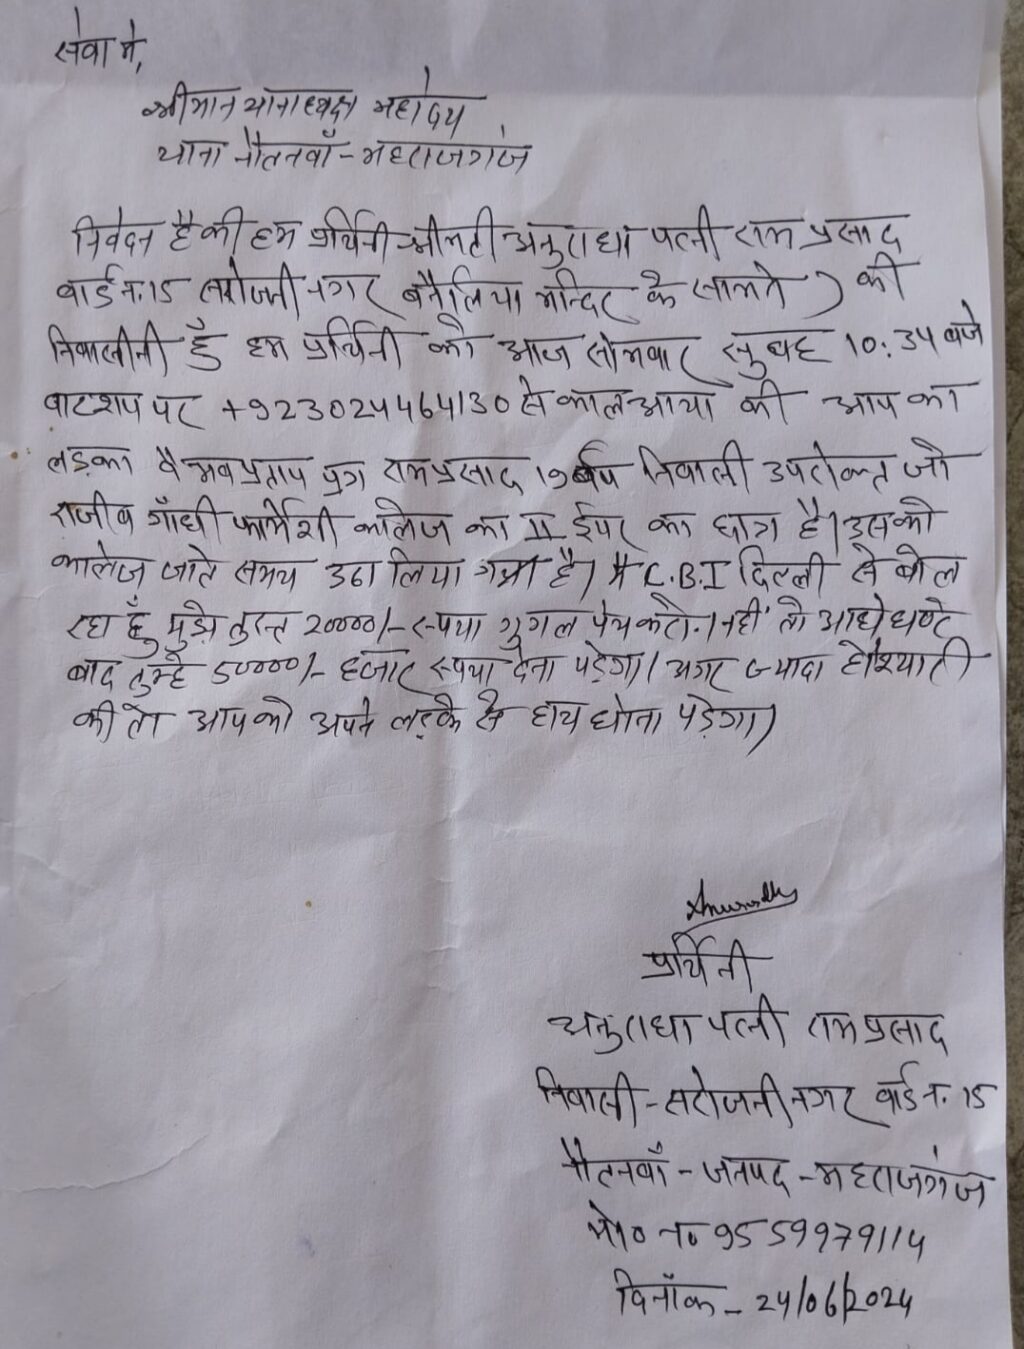 सेवा मे,
श्रीमान थानाध्यक्ष महोदय
थाना नौतनवाँ - महराजगंज
निवेदन है की हम प्रर्थिनी श्रीमती अनुराधा पत्नी राम प्रसाद
वार्ड नं. 15 सरोजनी नगर बनैलिया मन्दिर के सामने) की
निवासीनी हूँ हम प्रर्थिनी को आज सोमवार सुबह 10:34 बजे
वाटशप पर +923024464130 से काल आया की आप का
लड़का वैभव प्रताप पुत्र राम प्रसाद 19 वर्ष निवासी उपरोक्त जो
राजीव गाँधी फार्मेशी कालेज का II ईयर का छात्र है। उसको
कालेज जाते समय उठा लिया गया है। मै C.B.I दिल्ली से बोल
रहा हूँ मुझे तुरन्त 20000/- रूपया गुगल पेय करो। नहीं तो आधे घण्टे
बाद तुम्हे 50000/- हजार रूपया देना पड़ेगा। अगर ज्यादा होशियारी
की तो आपको अपने लड़के से हाथ धोना पड़ेगा।
प्रर्थिनी
अनुराधा पत्नी राम प्रसाद
निवासी - सरोजनी नगर वार्ड न. 15
नौतनवाँ - जनपद - महराजगंज
मो0 न0 9559979114
दिनाँक - 24/06/2024